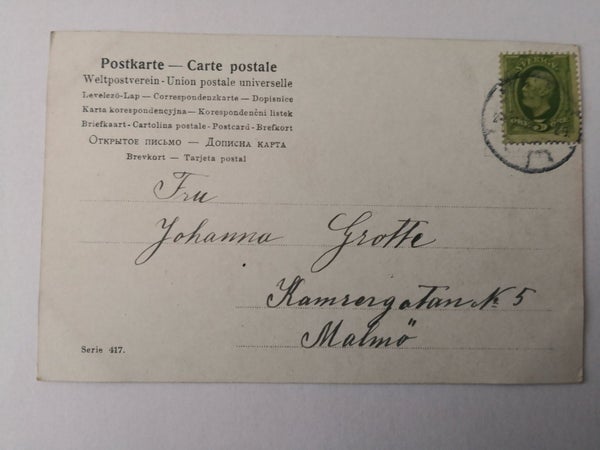 Postkarte — Carte postale
Weltpostverein - Union postale universelle
Levelező-Lap — Correspondenzkarte — Dopisnice
Karta korespondencyjna — Korespondenční lístek
Briefkaart - Cartolina postale - Postcard - Brefkort
Открытое письмо — Дописна карта
Brevkort — Tarjeta postal
SVERIGE
5
Fru
Johanna Grotte
Kamrergatan № 5
Malmö
Serie 417.